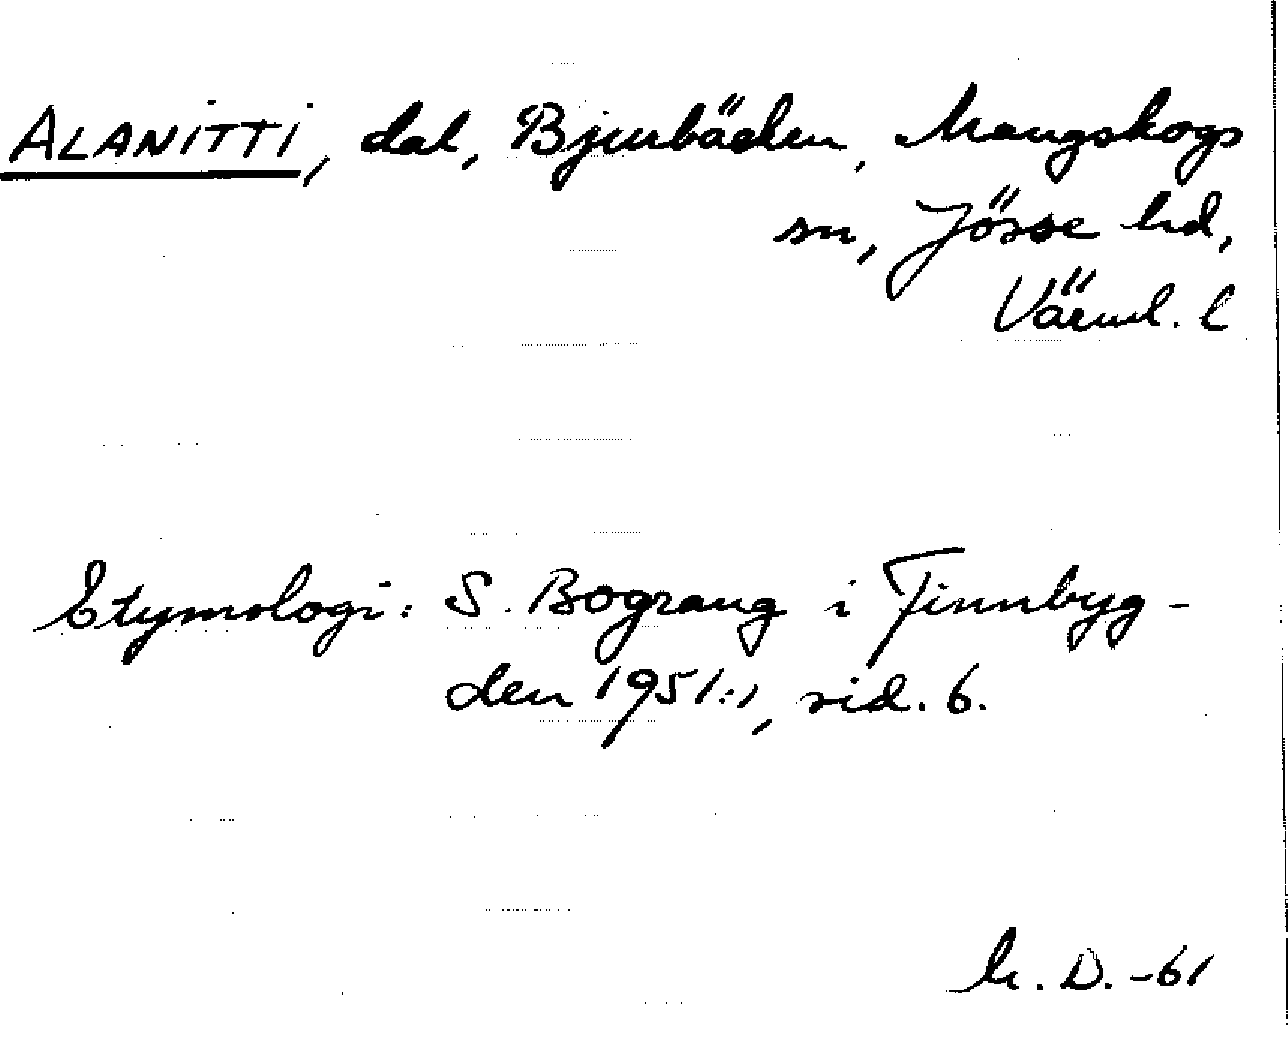 ALANITTI, dal, Bjurbäcken, Mangskogs
sn, Jösse hd,
Värml. l
Etymologi: S. Bograng i Finnbyg-
den 1951:1, sid. 6.
M. D. -61